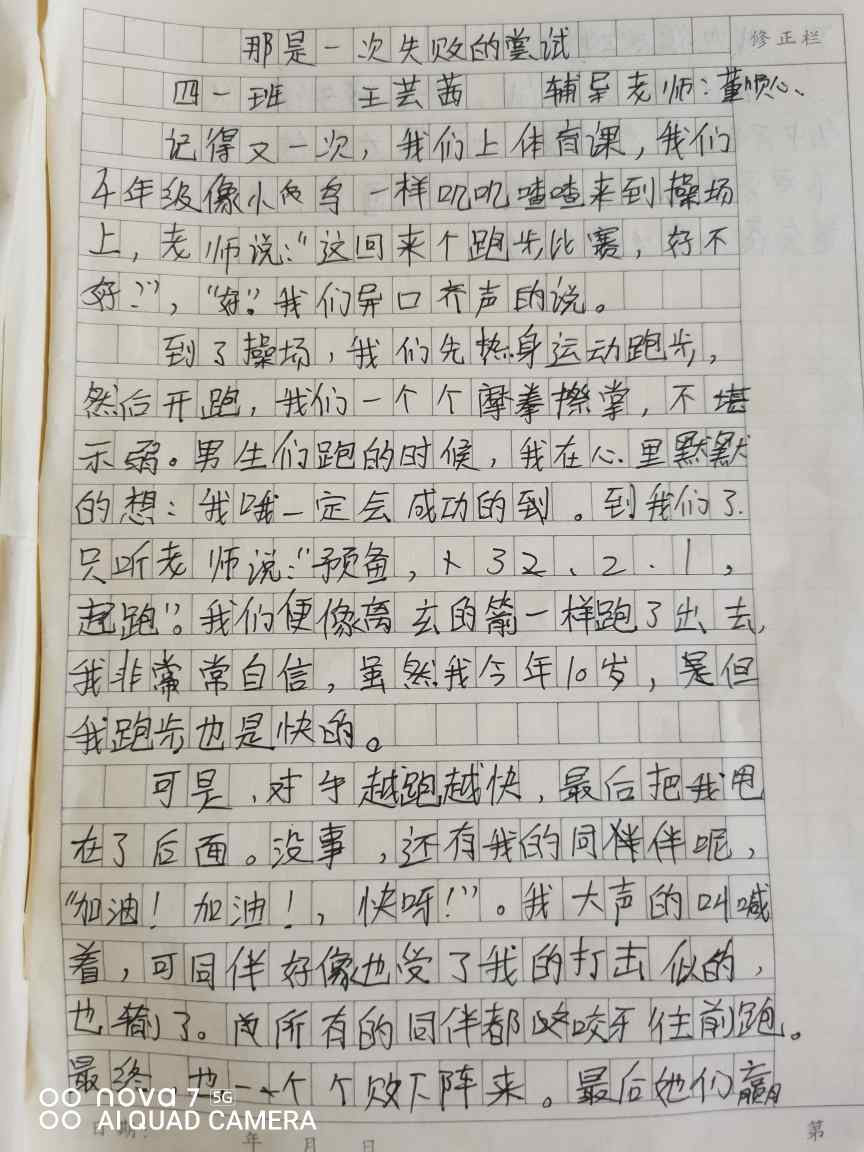 那是一次失败的尝试
修正栏
四一班 王芸茜 辅导老师:董顺心
记得又一次,我们上体育课,我们
年级像小鸟一样叽叽喳喳来到操场
上,老师说:“这回来个跑步比赛,好不
好?”,“好”。我们异口齐声的说。
到了操场,我们先热身运动跑步,
然后开跑,我们一个个摩拳擦掌,不堪
示弱。男生们跑的时候,我在心里默默
的想:我哦一定会成功的到。到我们了.
只听老师说:“预备,32、2.1,
起跑”。我们便像离玄的箭一样跑了出去,
我非常常自信,虽然我今年10岁,是但
我跑步也是快的。
可是,对手越跑越快,最后把我甩
在了后面。没事,还有我的同伴伴呢,
“加油!加油!,快呀!”。我大声的叫喊
着,可同伴好像也受了我的打击似的,
也输了。所有的同伴都咬牙往前跑。
最终,也一个个败下阵来。最后她们赢
nova 7 5G
AI QUAD CAMERA
日期: 年 月 日
第